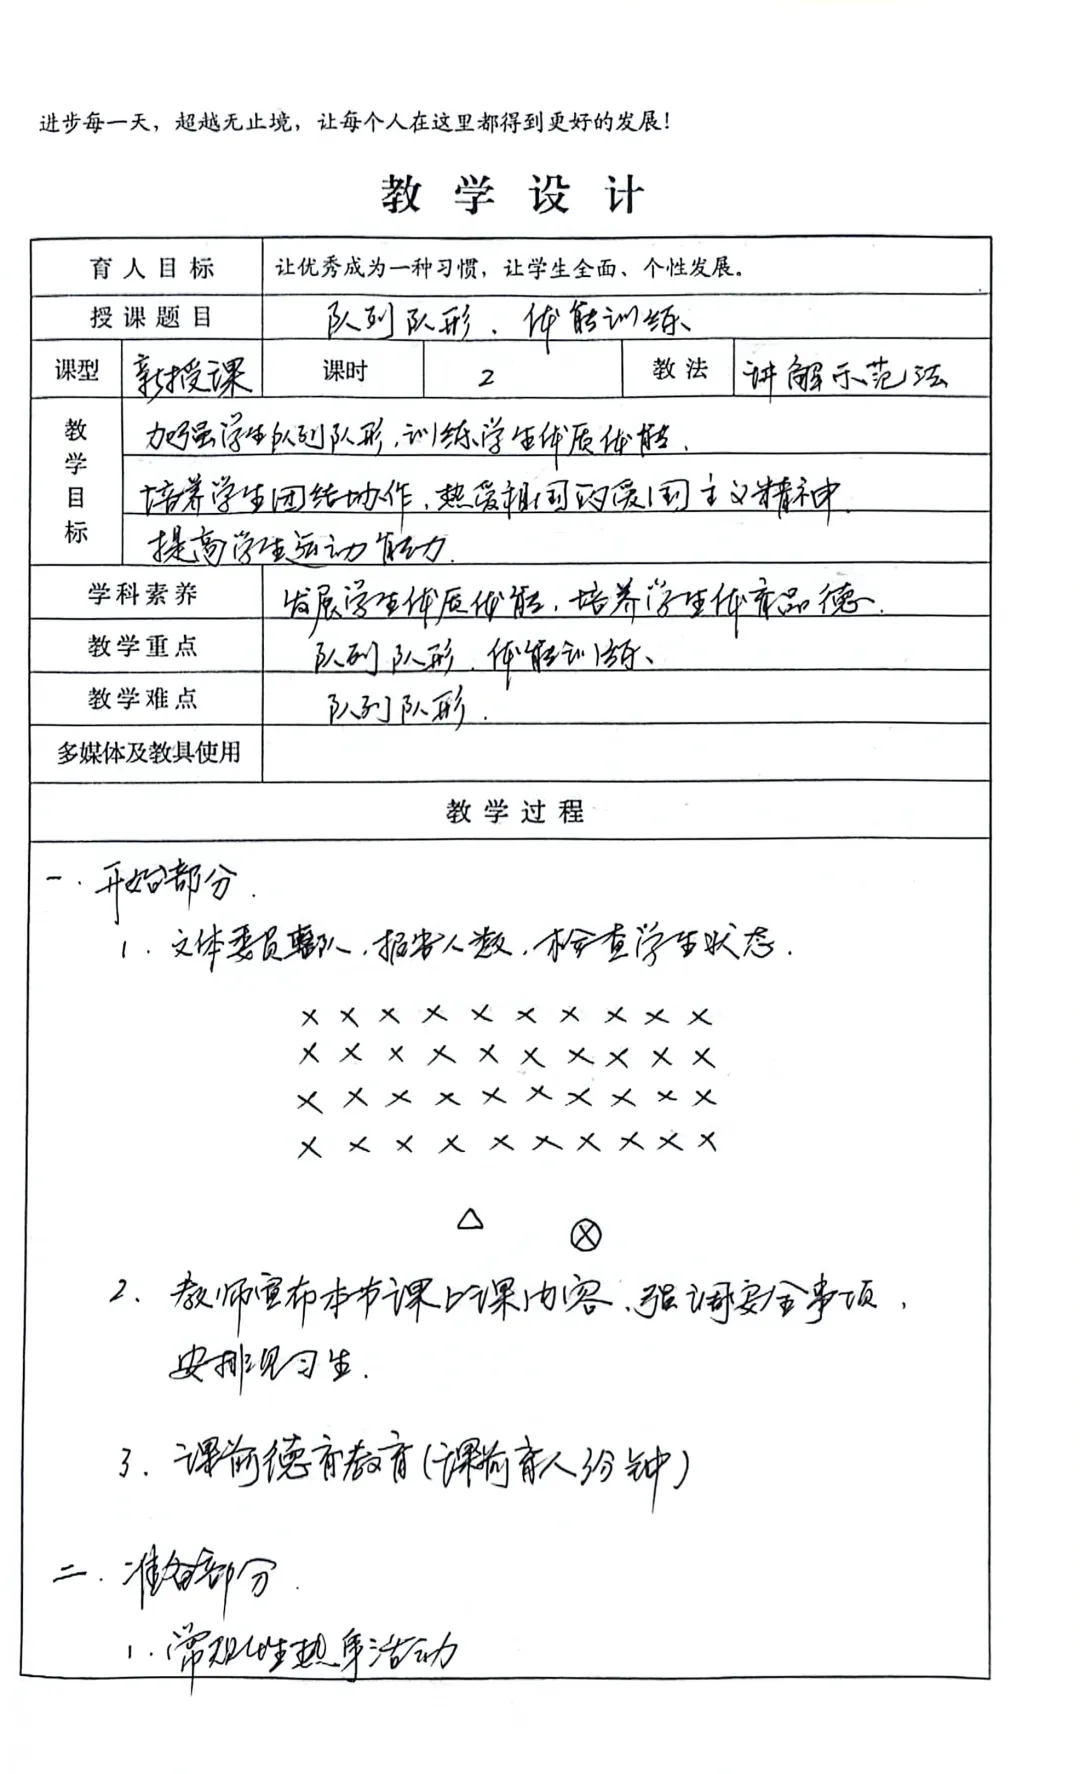 进步每一天，超越无止境，让每个人在这里都得到更好的发展！
教学设计
育人目标 让优秀成为一种习惯，让学生全面、个性发展。
授课题目 队列队形、体能训练
课型 新授课 课时 2 教法 讲解示范法
教学目标 加强学生队列队形，训练学生体质体能.
培养学生团结协作，热爱祖国的爱国主义精神.
提高学生运动能力.
学科素养 发展学生体质体能，培养学生体育品德.
教学重点 队列队形、体能训练
教学难点 队列队形.
多媒体及教具使用
教学过程
一.开始部分.
1.文体委员整队，报告人数，检查学生状态.
× × × × × × × × × ×
× × × × × × × × × ×
× × × × × × × × × ×
× × × × × × × × × ×
△ ⊗
2.教师宣布本节课上课内容，强调安全事项，
安排见习生.
3.课前德育教育(课前育人3分钟)
二.准备部分.
1.常规性热身活动